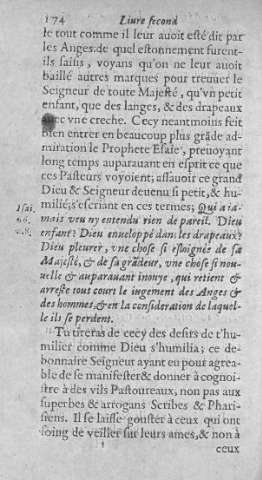 174 Liure second
le tout comme il leur auoit esté dit par
les Anges. de quel estonnement furent-
ils saisis, voyans qu'on ne leur auoit
baillé autres marques pour treuuer le
Seigneur de toute Majesté, qu'vn petit
enfant, que des langes, & des drapeaux
auec vne creche. Cecy neantmoins feit
bien entrer en beaucoup plus grãde ad-
miration le Prophete Esaïe, preuoyant
long temps auparauant en esprit ce que
ces Pasteurs voyoient; assauoir ce grand
Dieu & Seigneur deuenu si petit, & hu-
Isai. milié; s'escriant en ces termes; Qui a ia-
mais veu ny entendu rien de pareil. Dieu
enfant? Dieu enueloppé dans les drapeaux?
Dieu pleurer, vne chose si esloignee de sa
Majesté, & de sa grãdeur, vne chose si nou-
uelle & auparauant inouye, qui retient &
arreste tout court le iugement des Anges &
des hommes, & en la consideration de laquel-
le ils se perdent.
Tu tireras de cecy des desirs de t'hu-
milier comme Dieu s'humilia; ce de-
bonnaire Seigneur ayant eu pour agrea-
ble de se manifester & donner à cognoi-
stre à des vils Pastoureaux, non pas aux
superbes & arrogans Scribes & Phari-
siens. Il se laisse gouster à ceux qui ont
soing de veiller sur leurs ames, & non à
ceux